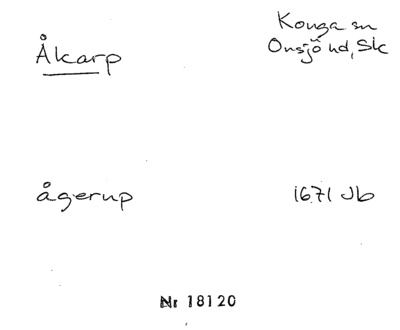 Åkarp
Konga sn
Onsjö hd, Sk
ågerup
1671 Jb
Nr 18120